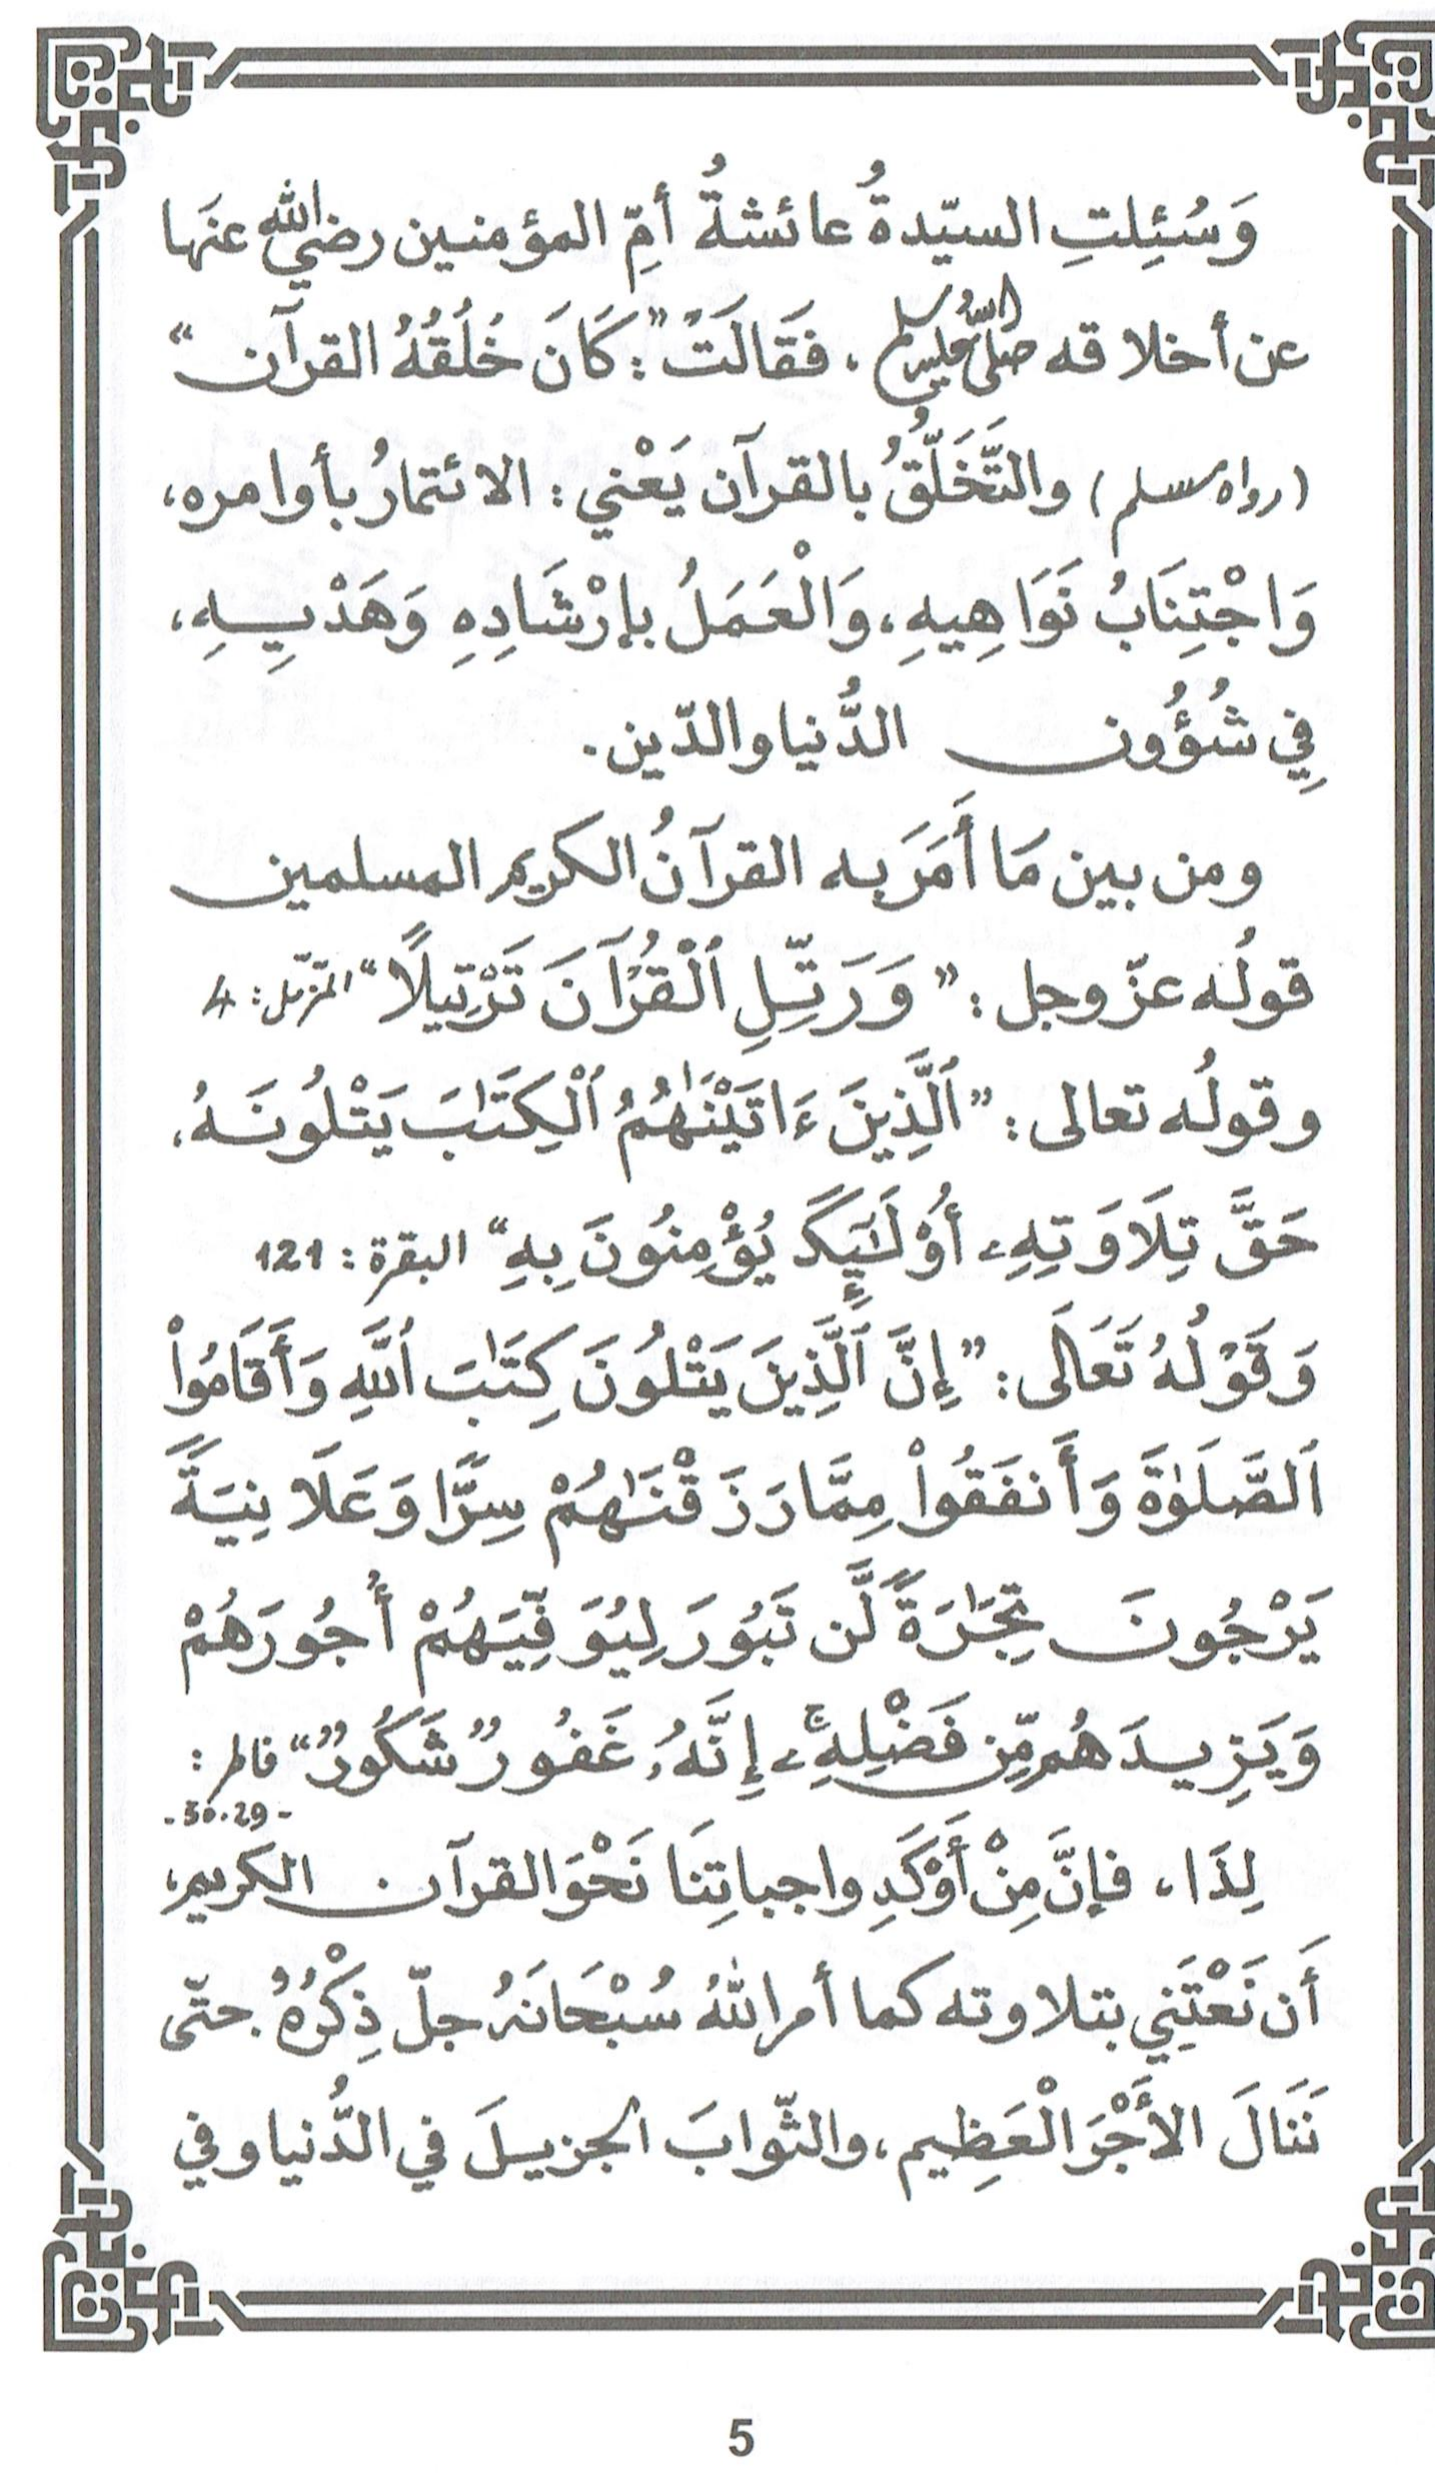 وَسُئِلتِ السيّدةُ عائشةُ أمِّ المؤمنين رضي الله عنها
عن أخلاقه صلى الله عليه وسلم، فَقَالَتْ": كَانَ خُلُقُهُ القرآن"
(رواه مسلم) والتَّخَلُّقُ بالقرآن يَعْني: الائتمارُ بأوامره،
وَاجْتِنَابُ نَوَاهِيهِ، وَالْعَمَلُ بإرْشَادِهِ وَهَدْيِهِ،
فِي شُؤُون الدُّنيا والدّين.
ومن بين مَا أَمَرَ به القرآنُ الكريم المسلمين
قولُه عزّ وجل: "وَرَتِّلِ ٱلْقُرْآنَ تَرْتِيلًا" المزّمّل: 4
وقولُه تعالى: "ٱلَّذِينَ ءَاتَيْنَٰهُمُ ٱلْكِتَٰبَ يَتْلُونَهُ.
حَقَّ تِلَاوَتِهِۦ أُوْلَٰٓئِكَ يُؤْمِنُونَ بِهِ" البقرة: 121
وَقَوْلُهُ تَعَالَى: "إِنَّ ٱلَّذِينَ يَتْلُونَ كِتَٰبَ ٱللَّهِ وَأَقَامُواْ
ٱلصَّلَوٰةَ وَأَنفَقُواْ مِمَّا رَزَقْنَٰهُمْ سِرًّا وَعَلَانِيَةً
يَرْجُونَ تِجَٰرَةً لَّن تَبُورَ لِيُوَفِّيَهُمْ أُجُورَهُمْ
وَيَزِيدَهُم مِّن فَضْلِهِۦۚ إِنَّهُۥ غَفُورٌ شَكُورٌ" فاطر:
-30.29-
لِذَا، فإنَّ مِنْ أَوْكَدِ واجباتِنَا نَحْوَ القرآن الكريم،
أَن نَعْتَنِي بتلاوته كما أمر اللهُ سُبْحَانَهُ جلّ ذِكْرُهُ. حتّى
نَنَالَ الأَجْرَ الْعَظِيم، والثّوابَ الجزيلَ في الدُّنيا وفي
5